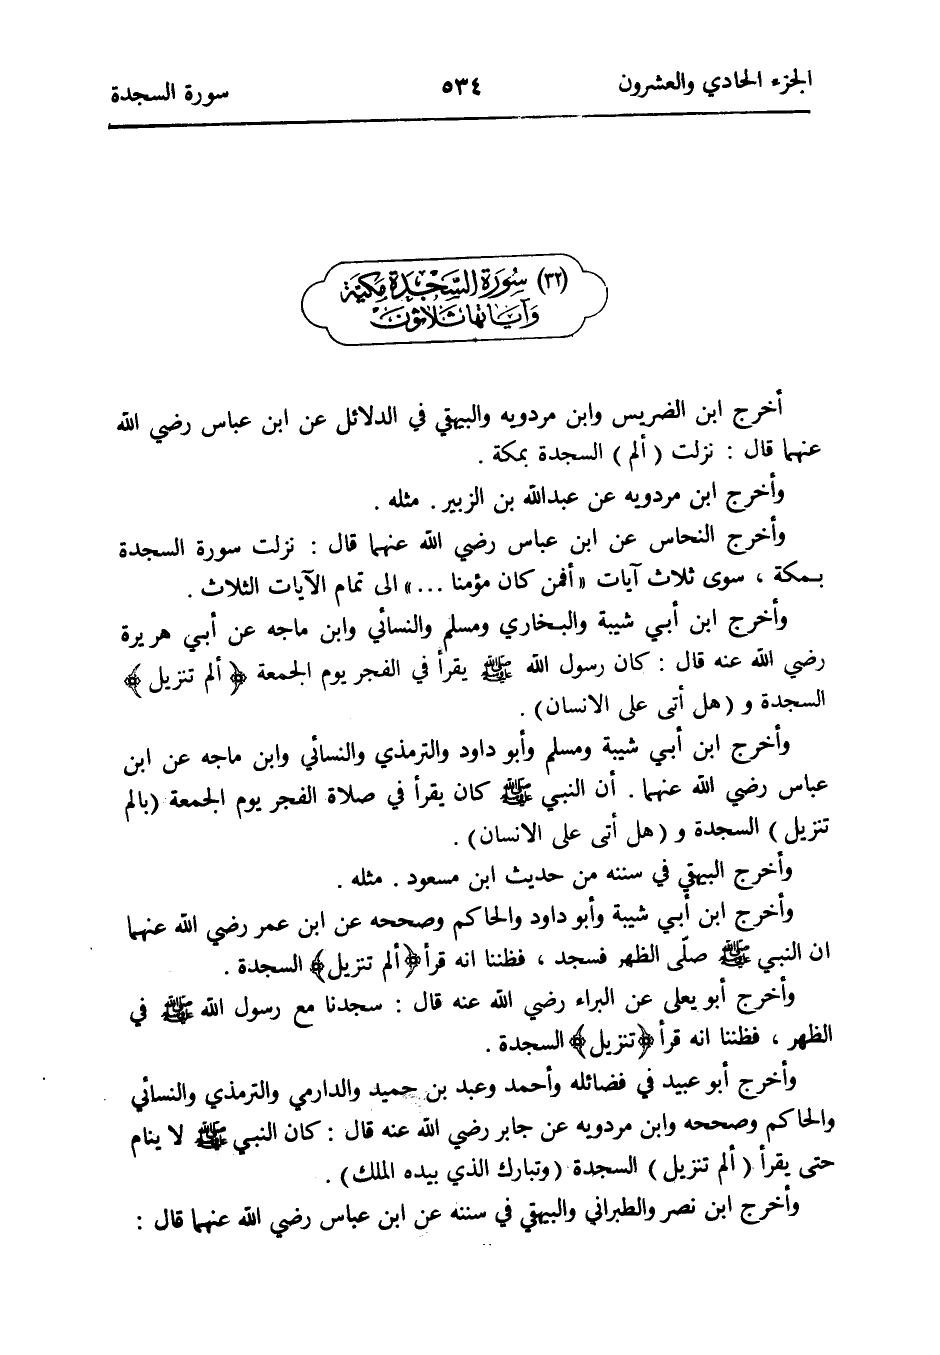 الجزء الحادي والعشرون ٥٣٤ سورة السجدة
(٣٢) سُورَة السَّجْدَة مكيَّة
وَآيَاتها ثَلاثونَ
أخرج ابن الضريس وابن مردويه والبيهقي في الدلائل عن ابن عباس رضي الله
عنهما قال : نزلت ( ألم ) السجدة بمكة .
وأخرج ابن مردويه عن عبدالله بن الزبير . مثله .
وأخرج النحاس عن ابن عباس رضي الله عنهما قال : نزلت سورة السجدة
بـمكة ، سوى ثلاث آيات « أفمن كان مؤمنا ... » الى تمام الآيات الثلاث .
وأخرج ابن أبـي شيبة والبـخاري ومسلم والنسائي وابن ماجه عن أبـي هريرة
رضي الله عنه قال : كان رسول الله ﷺ يقرأ في الفجر يوم الجمعة ﴿ ألم تنزيل ﴾
السجدة و ( هل أتى على الانسان ) .
وأخرج ابن أبـي شيبة ومسلم وأبو داود والترمذي والنسائي وابن ماجه عن ابن
عباس رضي الله عنهما . أن النبـي ﷺ كان يقرأ في صلاة الفجر يوم الجمعة ( بالم
تنزيل ) السجدة و ( هل أتى على الانسان ) .
وأخرج البيهقي في سننه من حديث ابن مسعود . مثله .
وأخرج ابن أبـي شيبة وأبو داود والحاكم وصححه عن ابن عمر رضي الله عنهما
ان النبـي ﷺ صلّى الظهر فسجد ، فظننا انه قرأ ﴿ ألم تنزيل ﴾ السجدة .
وأخرج أبو يعلى عن البراء رضي الله عنه قال : سجدنا مع رسول الله ﷺ في
الظهر ، فظننا انه قرأ ﴿ تنزيل ﴾ السجدة .
وأخرج أبو عبيد في فضائله وأحمد وعبد بن حميد والدارمي والترمذي والنسائي
والحاكم وصححه وابن مردويه عن جابر رضي الله عنه قال : كان النبـي ﷺ لا ينام
حتى يقرأ ( ألم تنزيل ) السجدة ( وتبارك الذي بيده الملك ) .
وأخرج ابن نصر والطبراني والبيهقي في سننه عن ابن عباس رضي الله عنهما قال :